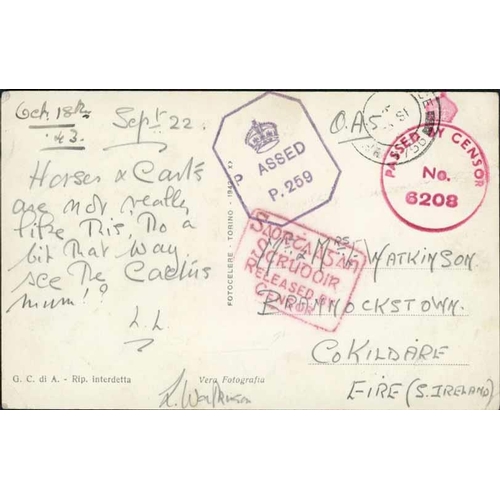 Oct. 18th
'43.
Sept 22.
Horses & Carts
are not really
like this, tho a
bit that way
see the Cactus
mum!?
L.L
G. C. di A. - Rip. interdetta
Vera Fotografia
L. Watkinson
FOTOCELERE - TORINO - 1942
PASSED
P. 259
O.A.S
PASSED BY CENSOR
No.
6208
SCRÚDÓIR
RELEASED BY
CENSOR
Mr & Mrs Watkinson
Brannockstown.
Co Kildare
Eire (S. Ireland)